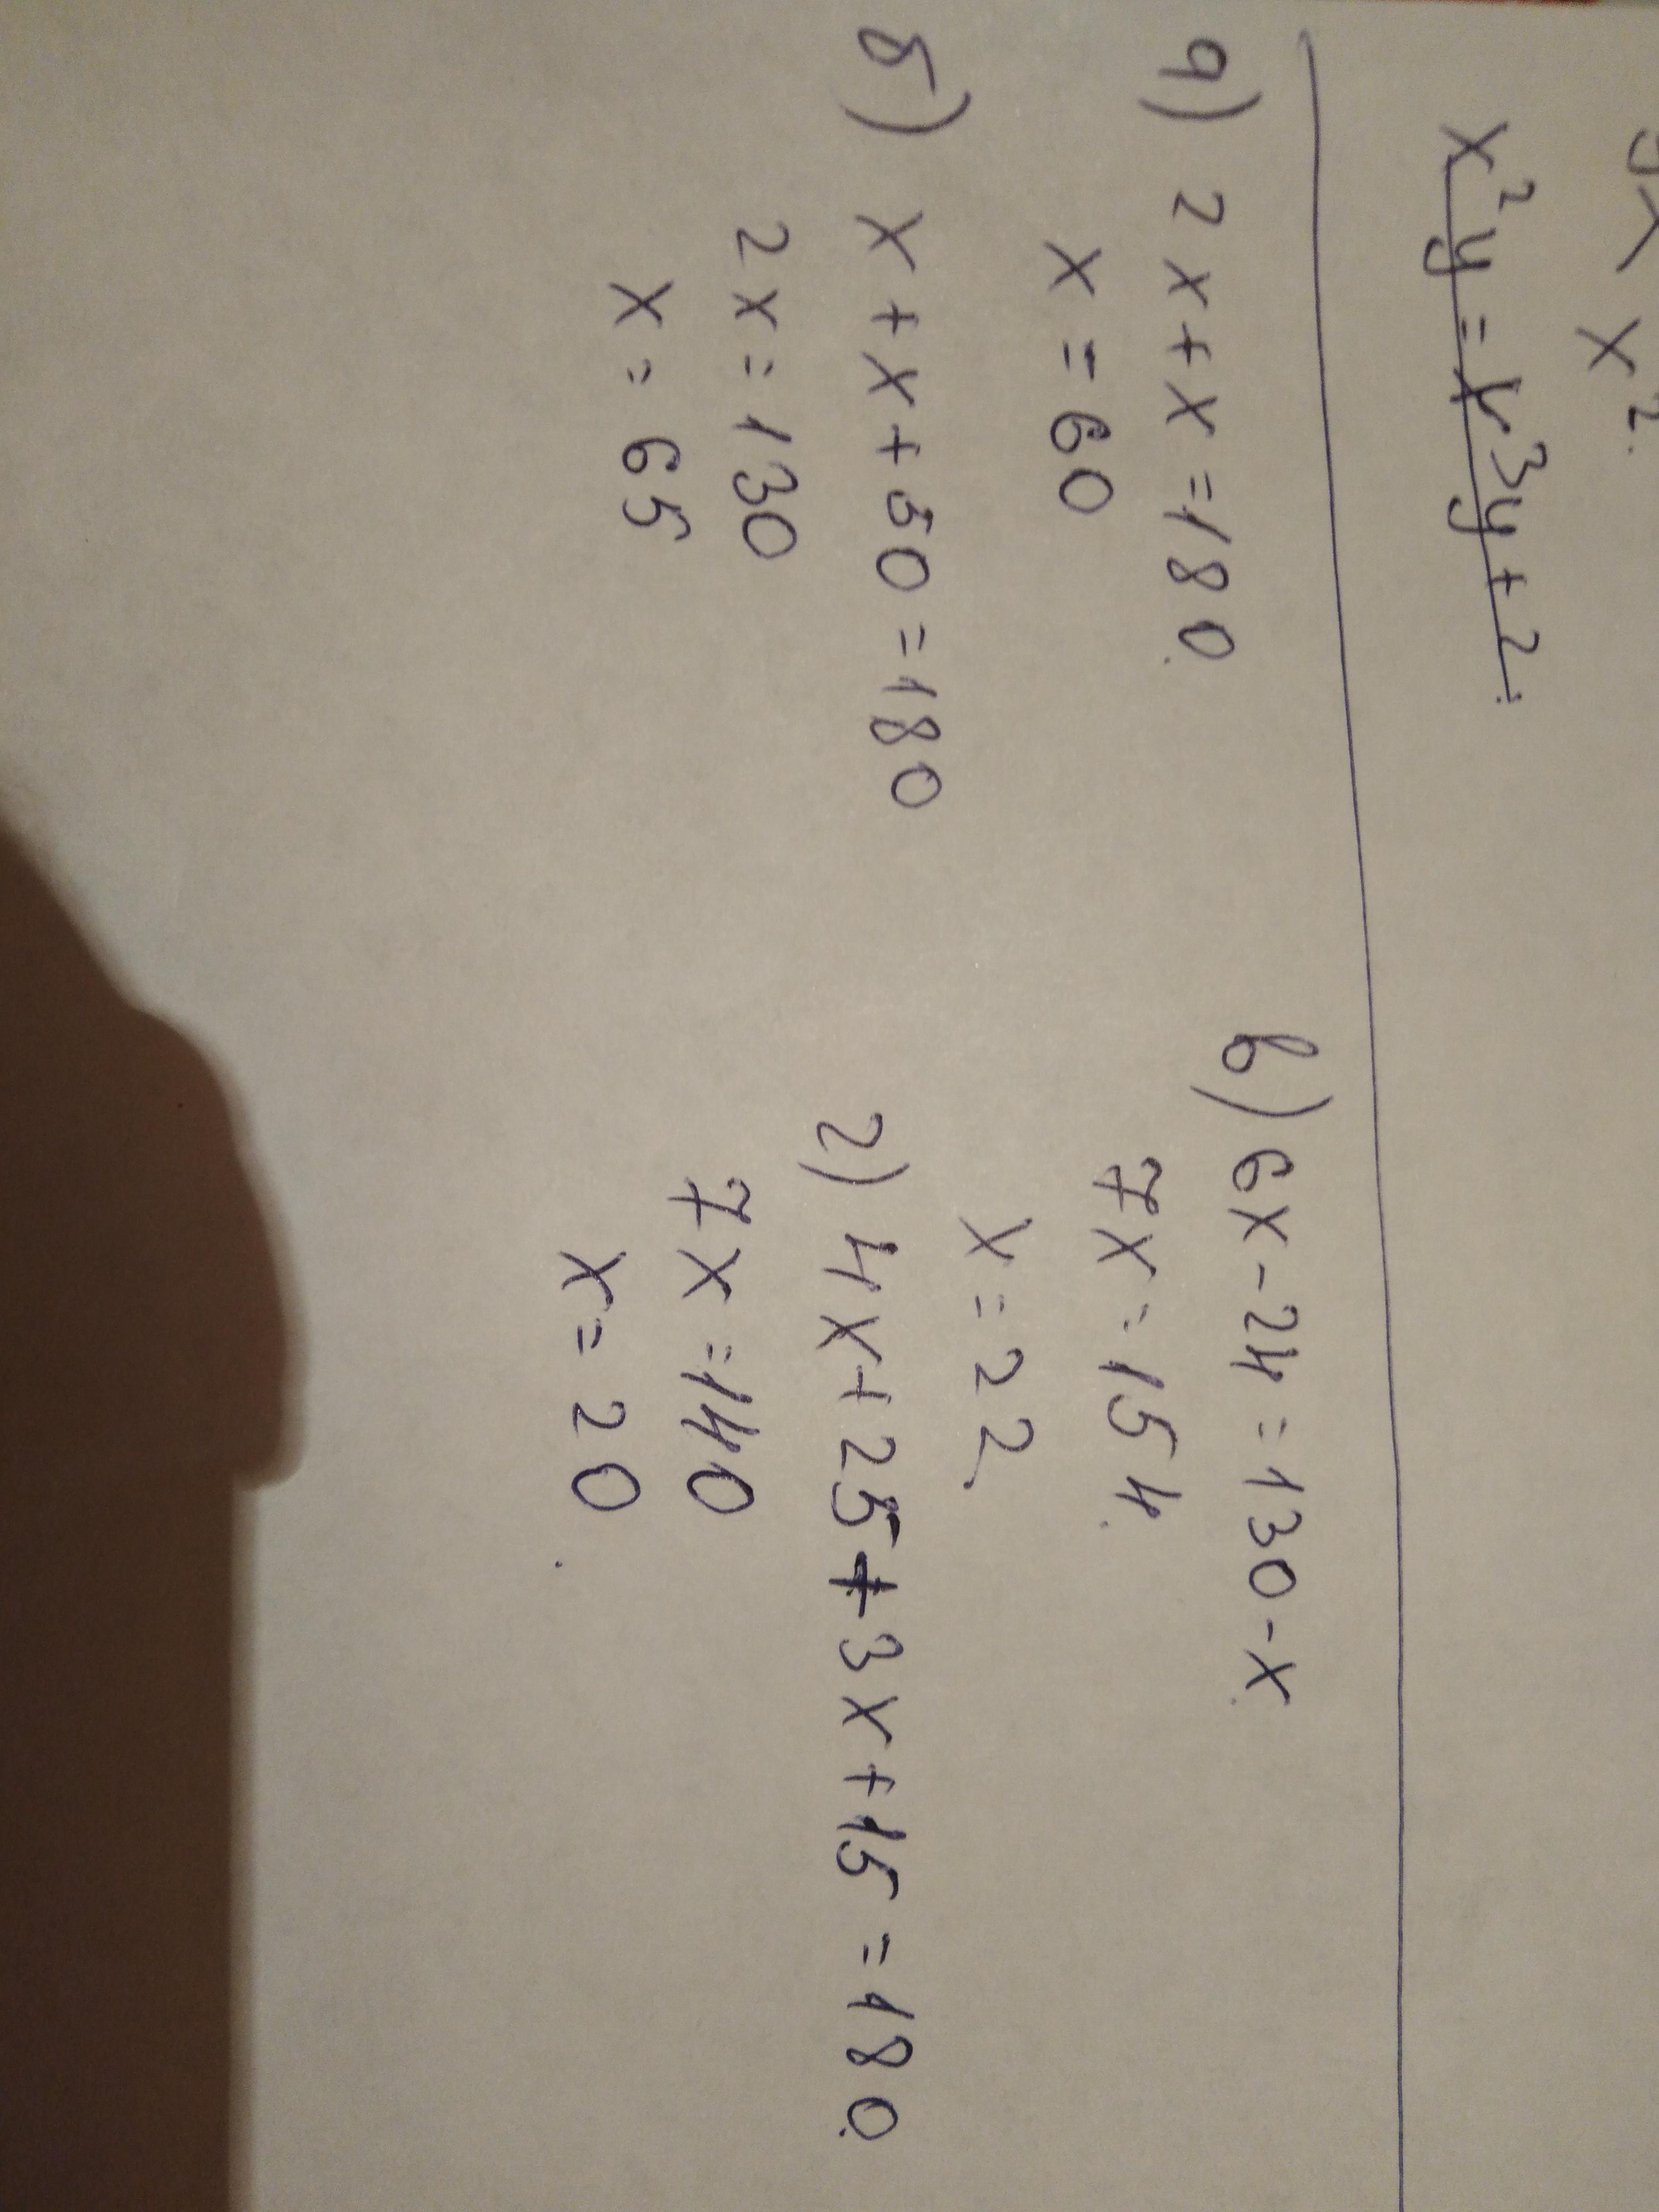 x².
x²y = x³y + 2.
а) 2x + x = 180.
x = 60
б) x + x + 50 = 180
2x = 130
x = 65
в) 6x - 24 = 130 - x.
7x = 154.
x = 22.
г) 4x + 25 + 3x + 15 = 180.
7x = 140
x = 20.